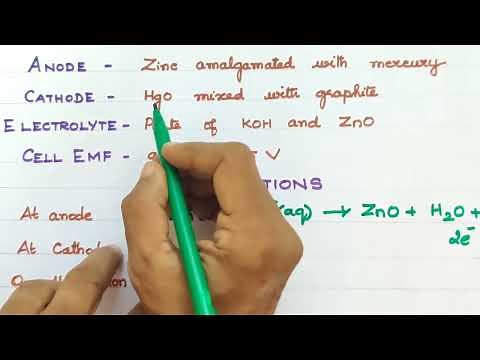 ANODE - Zinc amalgamated with mercury
CATHODE - HgO mixed with graphite
ELECTROLYTE - of KOH and ZnO
CELL EMF - V
At anode (aq) → ZnO + H₂O +
2e⁻
At